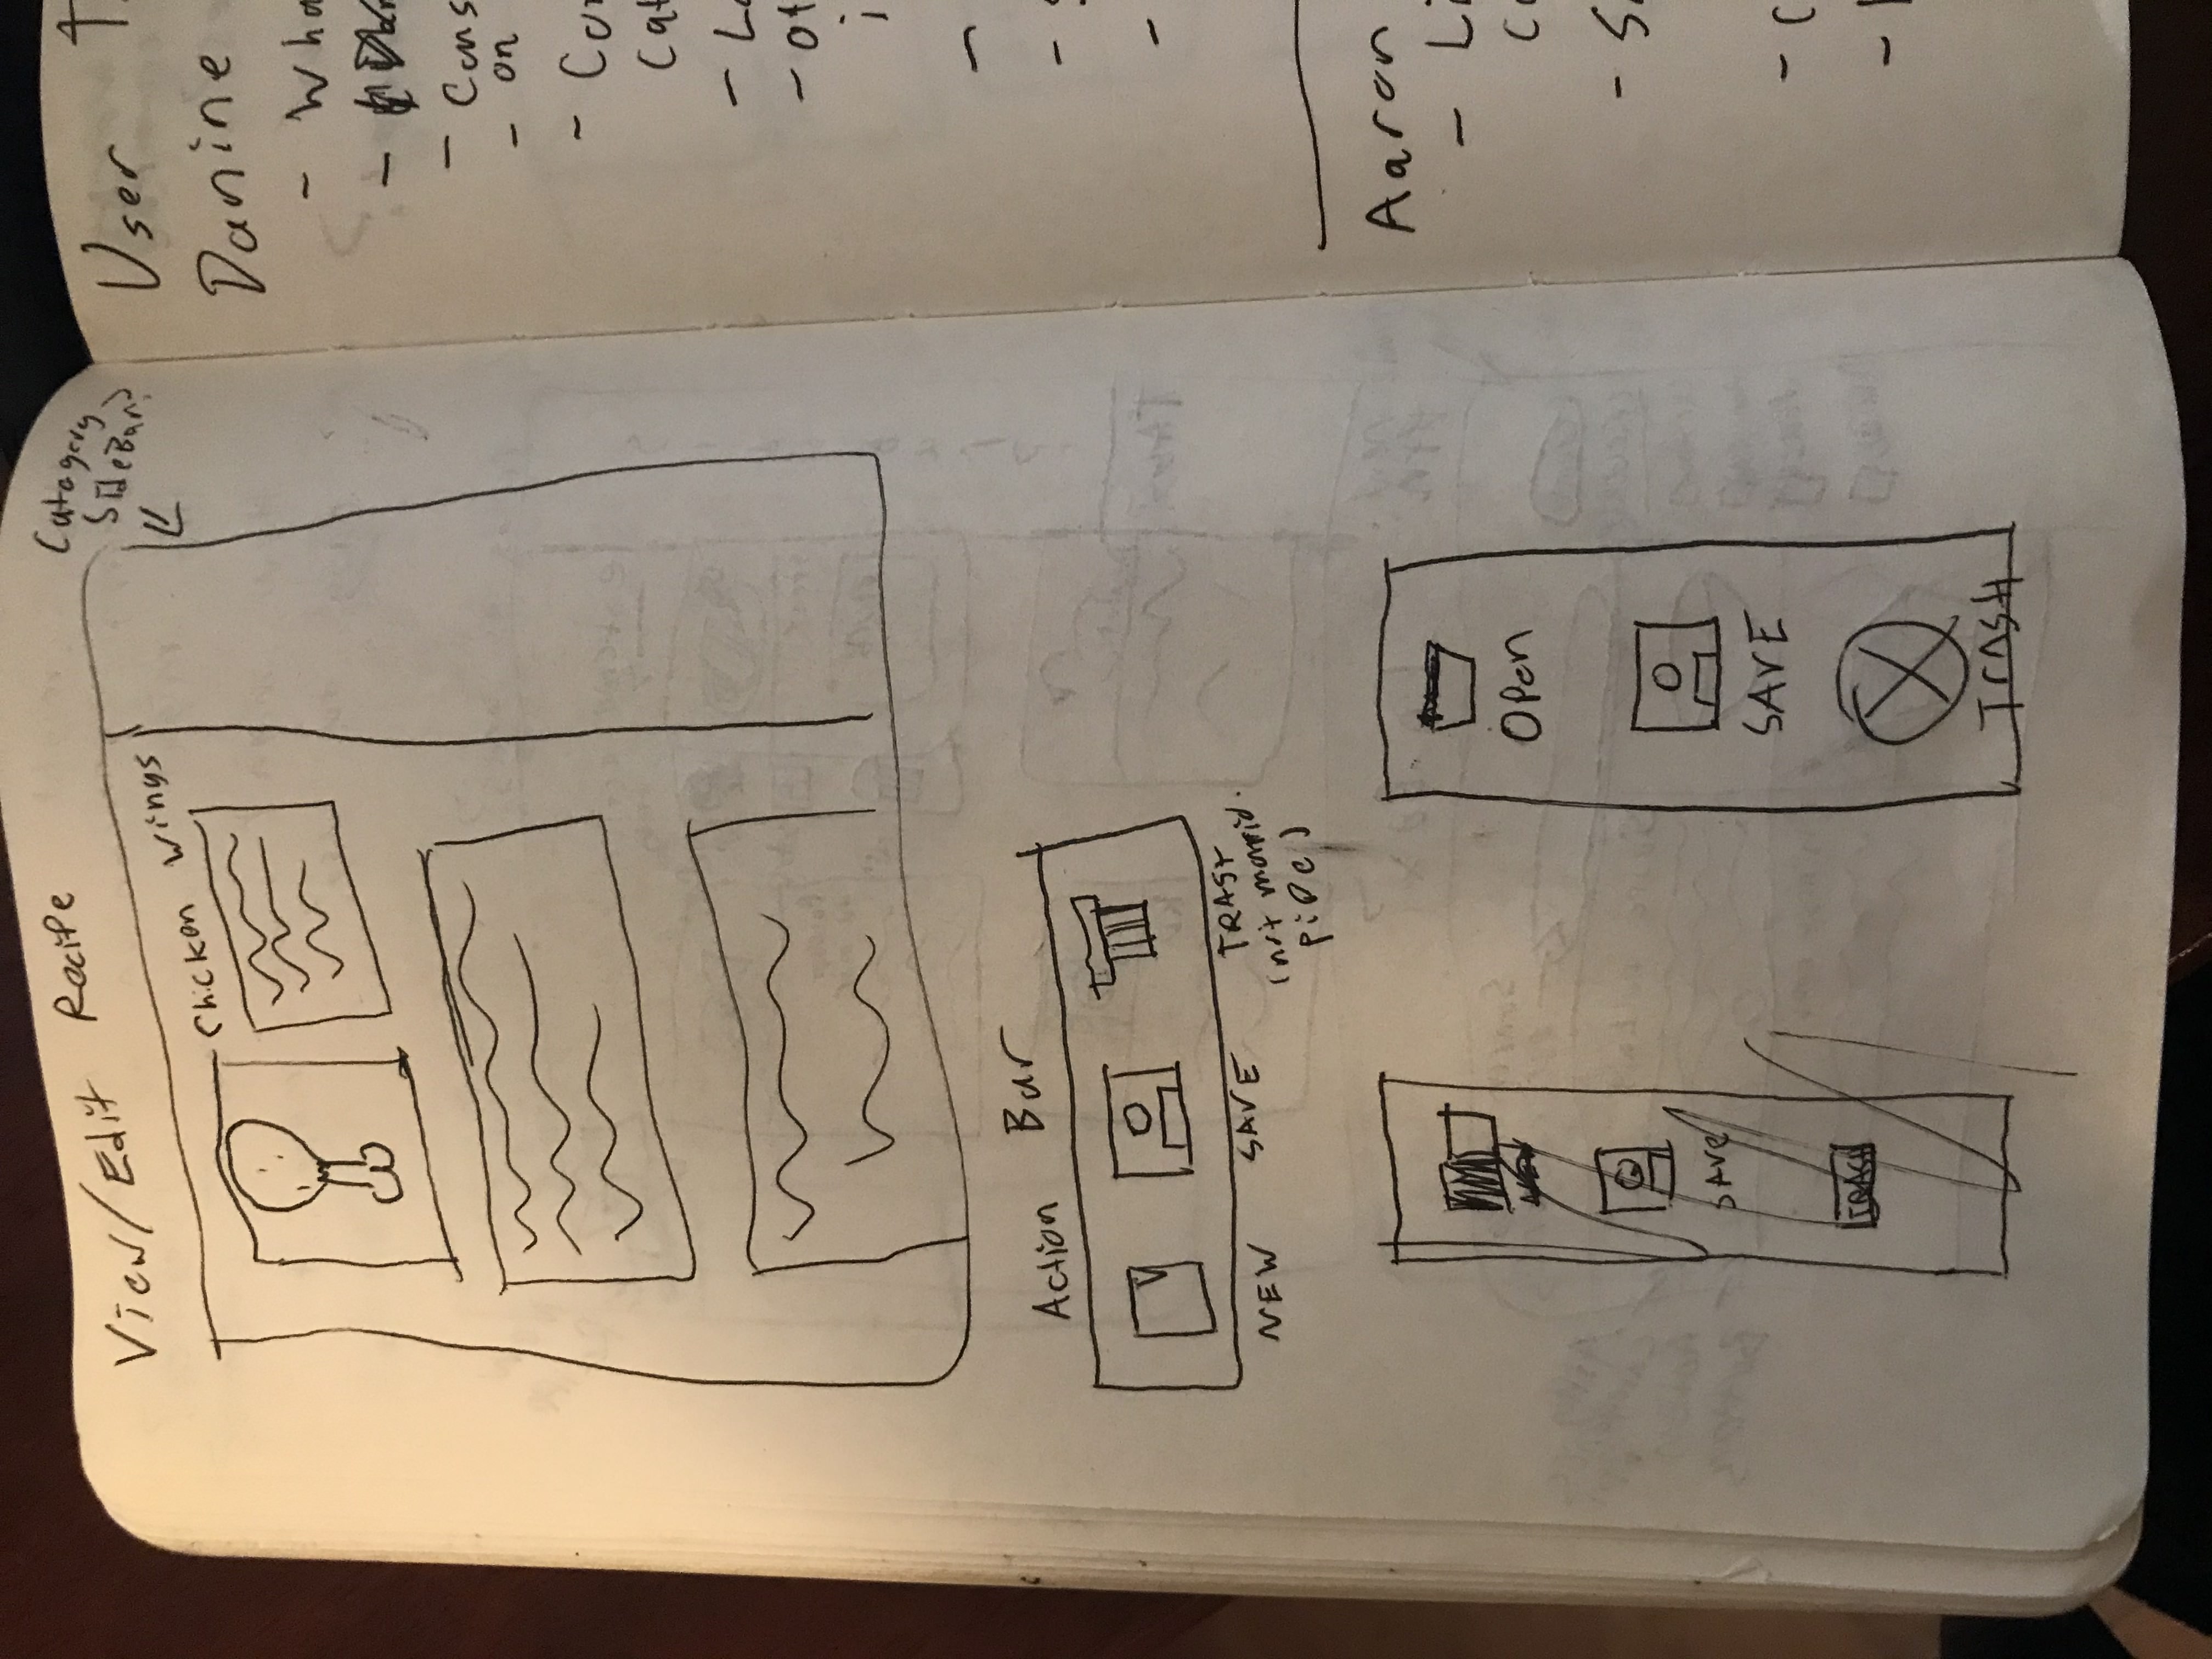 View/Edit Recipe
Catagory
SideBar?
Chicken Wings
Action Bar
NEW
SAVE
TRASH
(not
pipe)
NEW
SAVe
TRASH
OPen
SAVE
TrASH
User
Danine
- Wha
-
- Cons
- on
- Con
Cat
- Lo
- ot
i
-
-
-
Aaron
- Li
Co
- S
- C
-